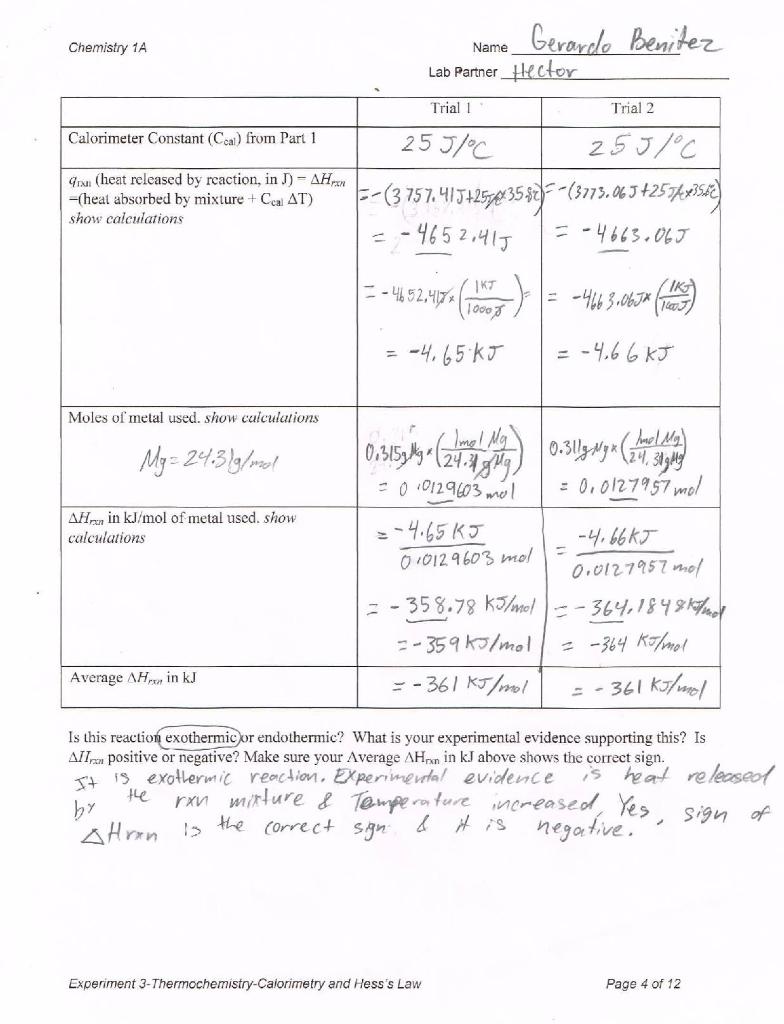 Chemistry 1A
Name Gerardo Benitez
Lab Partner Hector
Trial 1 Trial 2
Calorimeter Constant (Ccal) from Part 1 25 J/°C 25 J/°C
qrxn (heat released by reaction, in J) = ΔHrxn
=(heat absorbed by mixture + Ccal ΔT)
show calculations
=-(3757.41J+25J/°C×35.8°C) =-(3773.06J+25J/°C×35.6°C)
= -4652.41J = -4663.06J
= -4652.41J×(1KJ/1000J)= = -4663.06J×(1KJ/1000J)
= -4.65 KJ = -4.66 KJ
Moles of metal used. show calculations
Mg=24.31g/mol
0.315g Mg×(1mol Mg/24.31g Mg) 0.311g Mg×(1mol Mg/24.31g Mg)
= 0.0129603 mol = 0.0127957 mol
ΔHrxn in kJ/mol of metal used. show
calculations
= -4.65 KJ/0.0129603 mol = -4.66KJ/0.0127957 mol
= -358.78 KJ/mol = -364.1848KJ/mol
= -359 KJ/mol = -364 KJ/mol
Average ΔHrxn in kJ = -361 KJ/mol = -361 KJ/mol
Is this reaction exothermic or endothermic? What is your experimental evidence supporting this? Is
ΔHrxn positive or negative? Make sure your Average ΔHrxn in kJ above shows the correct sign.
It is exothermic reaction. Experimental evidence is heat released
by the rxn mixture & Temperature increased, Yes, sign of
ΔHrxn is the correct sign & it is negative.
Experiment 3-Thermochemistry-Calorimetry and Hess's Law Page 4 of 12